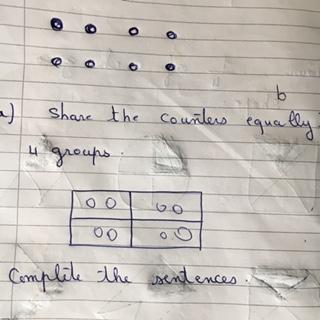 b
a) Share the counters equally
4 groups.
Complete the sentences.